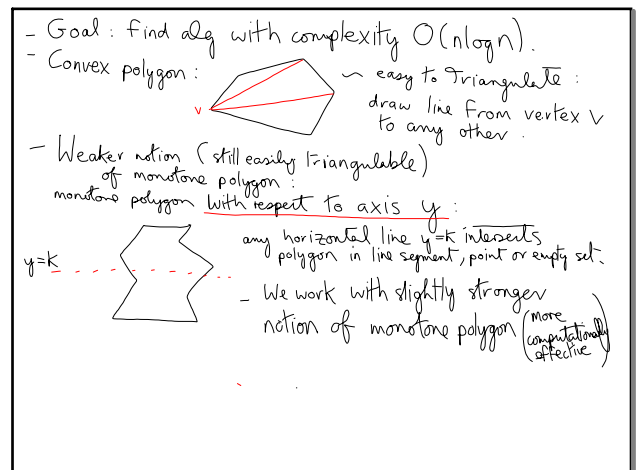 - Goal: find alg with complexity O(nlogn).
- Convex polygon:
~ easy to triangulate:
draw line from vertex V
to any other.
v
- Weaker notion (still easily triangulable)
of monotone polygon:
monotone polygon with respect to axis y:
any horizontal line y=k intersects
polygon in line segment, point or empty set.
y=k
- We work with slightly stronger
notion of monotone polygon (more
computationally
effective)